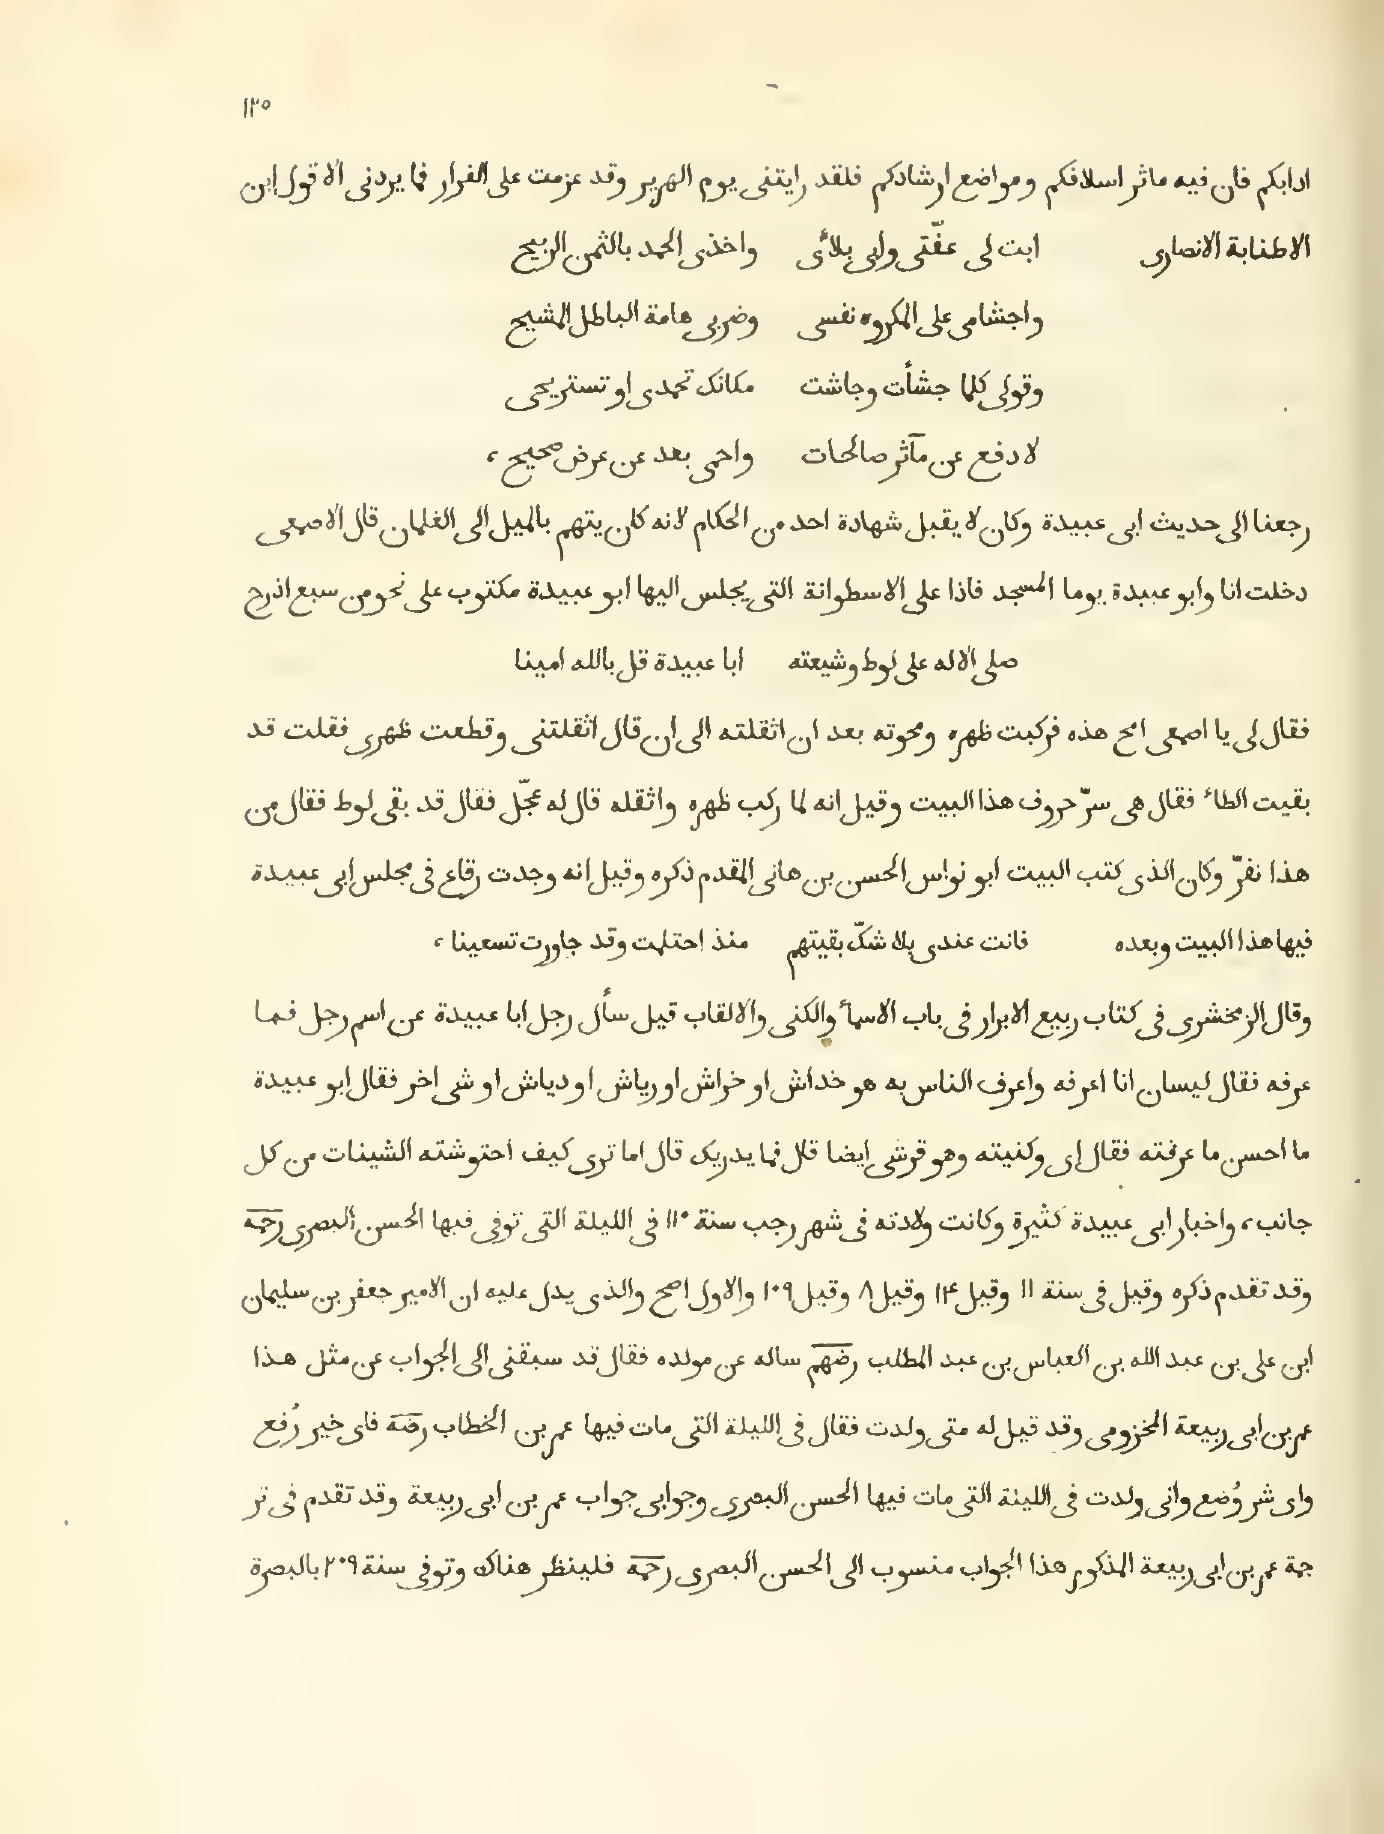 ١٢٥
ادابكم فان فيه ماثر اسلافكم ومواضع ارشادكم فلقد رايتنى يوم الهرير وقد عزمت على الفرار فما يردنى الا قول ابن
الاطنابة الانصارى ابت لى عفّتى وابى بلائى واخذى الحمد بالثمن الربيح
واجشامى على المكروه نفسى وضربى هامة الباطل المشيح
وقولى كلما جشأت وجاشت مكانك تحمدى او تستريحى
لادفع عن مآثر صالحات واحمى بعد عن عرض صحيح ،
رجعنا الى حديث ابى عبيدة وكان لا يقبل شهادة احد من الحكام لانه كان يتهم بالميل الى الغلمان قال الاصمعى
دخلت انا وابو عبيدة يوما المسجد فاذا على الاسطوانة التى يجلس اليها ابو عبيدة مكتوب على نحو من سبع اذرح
صلى الاله على لوط وشيعته ابا عبيدة قل بالله امينا
فقال لى يا اصمعى امح هذه فركبت ظهره ومحوته بعد ان اثقلته الى ان قال اثقلتنى وقطعت ظهرى فقلت قد
بقيت الطاء فقال هى سرّ حروف هذا البيت وقيل انه لما ركب ظهره واثقله قال له عجّل فقال قد بقى لوط فقال من
هذا نفرّ وكان الذى كتب البيت ابو نواس الحسن بن هانى المقدم ذكره وقيل انه وجدت رقاع فى مجلس ابى عبيدة
فيها هذا البيت وبعده فانت عندى بلا شكّ بقيتهم منذ احتلمت وقد جاورت تسعينا ،
وقال الزمخشرى فى كتاب ربيع الابرار فى باب الاسمآء والكنى والالقاب قيل سأل رجل ابا عبيدة عن اسم رجل فما
عرفه فقال ليسان انا اعرفه واعرف الناس به هو خداش او خراش او رياش او دياش او شى اخر فقال ابو عبيدة
ما احسن ما عرفته فقال اى وكنيته وهو قرشى ايضا قال فما يدريك قال اما ترى كيف احتوشته الشينات من كل
جانب ، واخبار ابى عبيدة كثيرة وكانت ولادته فى شهر رجب سنة ١١٠ فى الليلة التى توفى فيها الحسن البصرى رحمة
وقد تقدم ذكره وقيل فى سنة ١١ وقيل ١١۴ وقيل ٨ وقيل ١٠٩ والاول اصح والذى يدل عليه ان الامير جعفر بن سليمان
ابن على بن عبد الله بن العباس بن عبد المطلب رضهم ساله عن مولده فقال قد سبقنى الى الجواب عن مثل هذا
عمر بن ابى ربيعة المخزومى وقد قيل له متى ولدت فقال فى الليلة التى مات فيها عمر بن الخطاب رضة فاى خير رُفع
واى شر وُضع وانى ولدت فى الليلة التى مات فيها الحسن البصرى وجوابى جواب عمر بن ابى ربيعة وقد تقدم فى تر
جمة عمر بن ابى ربيعة المذكور هذا الجواب منسوب الى الحسن البصرى رحمة فلينظر هناك وتوفى سنة ٢٠٩ بالبصرة